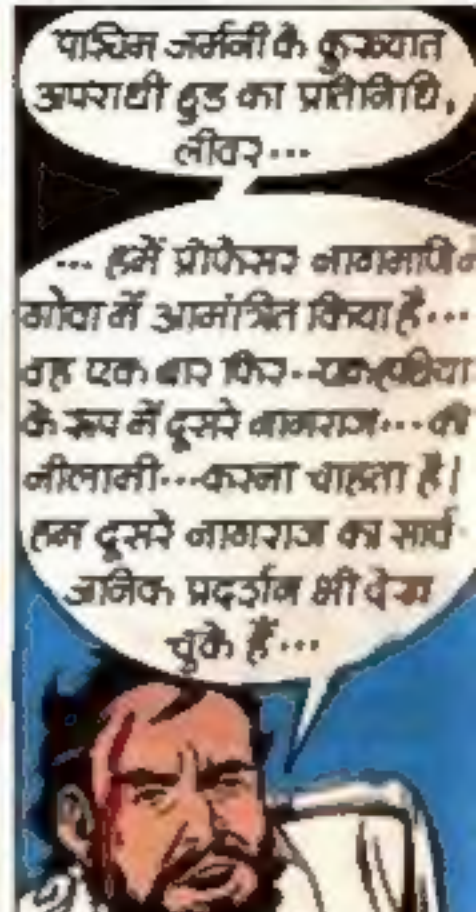 पश्चिम जर्मनी के कुख्यात
अपराधी डुड का प्रतिनिधि,
लीवर...
... हमें प्रोफेसर नागमणि न
गोवा में आमंत्रित किया है...
वह एक बार फिर...एक हथिया
के रूप में दूसरे नागराज...की
नीलामी...करना चाहता है।
हम दूसरे नागराज का सार्व-
जनिक प्रदर्शन भी देख
चुके हैं...